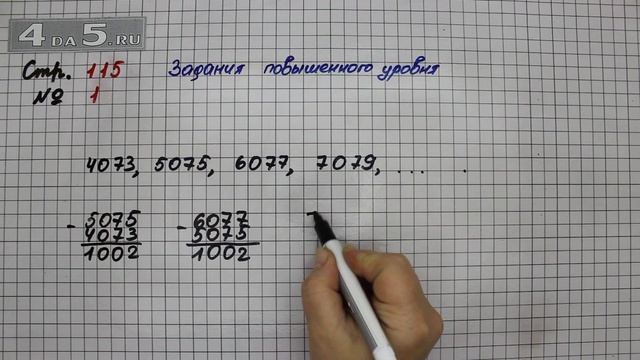 4 DA 5.RU
Стр. 115 Задания повышенного уровня
№ 1
4073, 5075, 6077, 7079, ... .
- 5075 - 6077
4073 5075
1002 1002